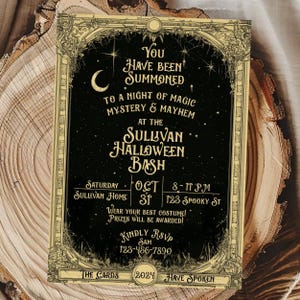 You
Have Been
Summoned
to a night of magic
mystery & mayhem
at the
Sullivan
Halloween
Bash
Saturday
Sullivan Home
Oct
31
8-11 P.M
123 Spooky St
Wear your best costume!
Prizes will be awarded!
Kindly RSVP
Sam
123-456-7890
The Cards
2024
Have Spoken